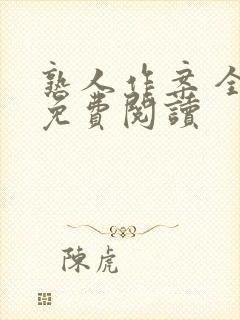 熟人作案全
免費閱讀
陳虎